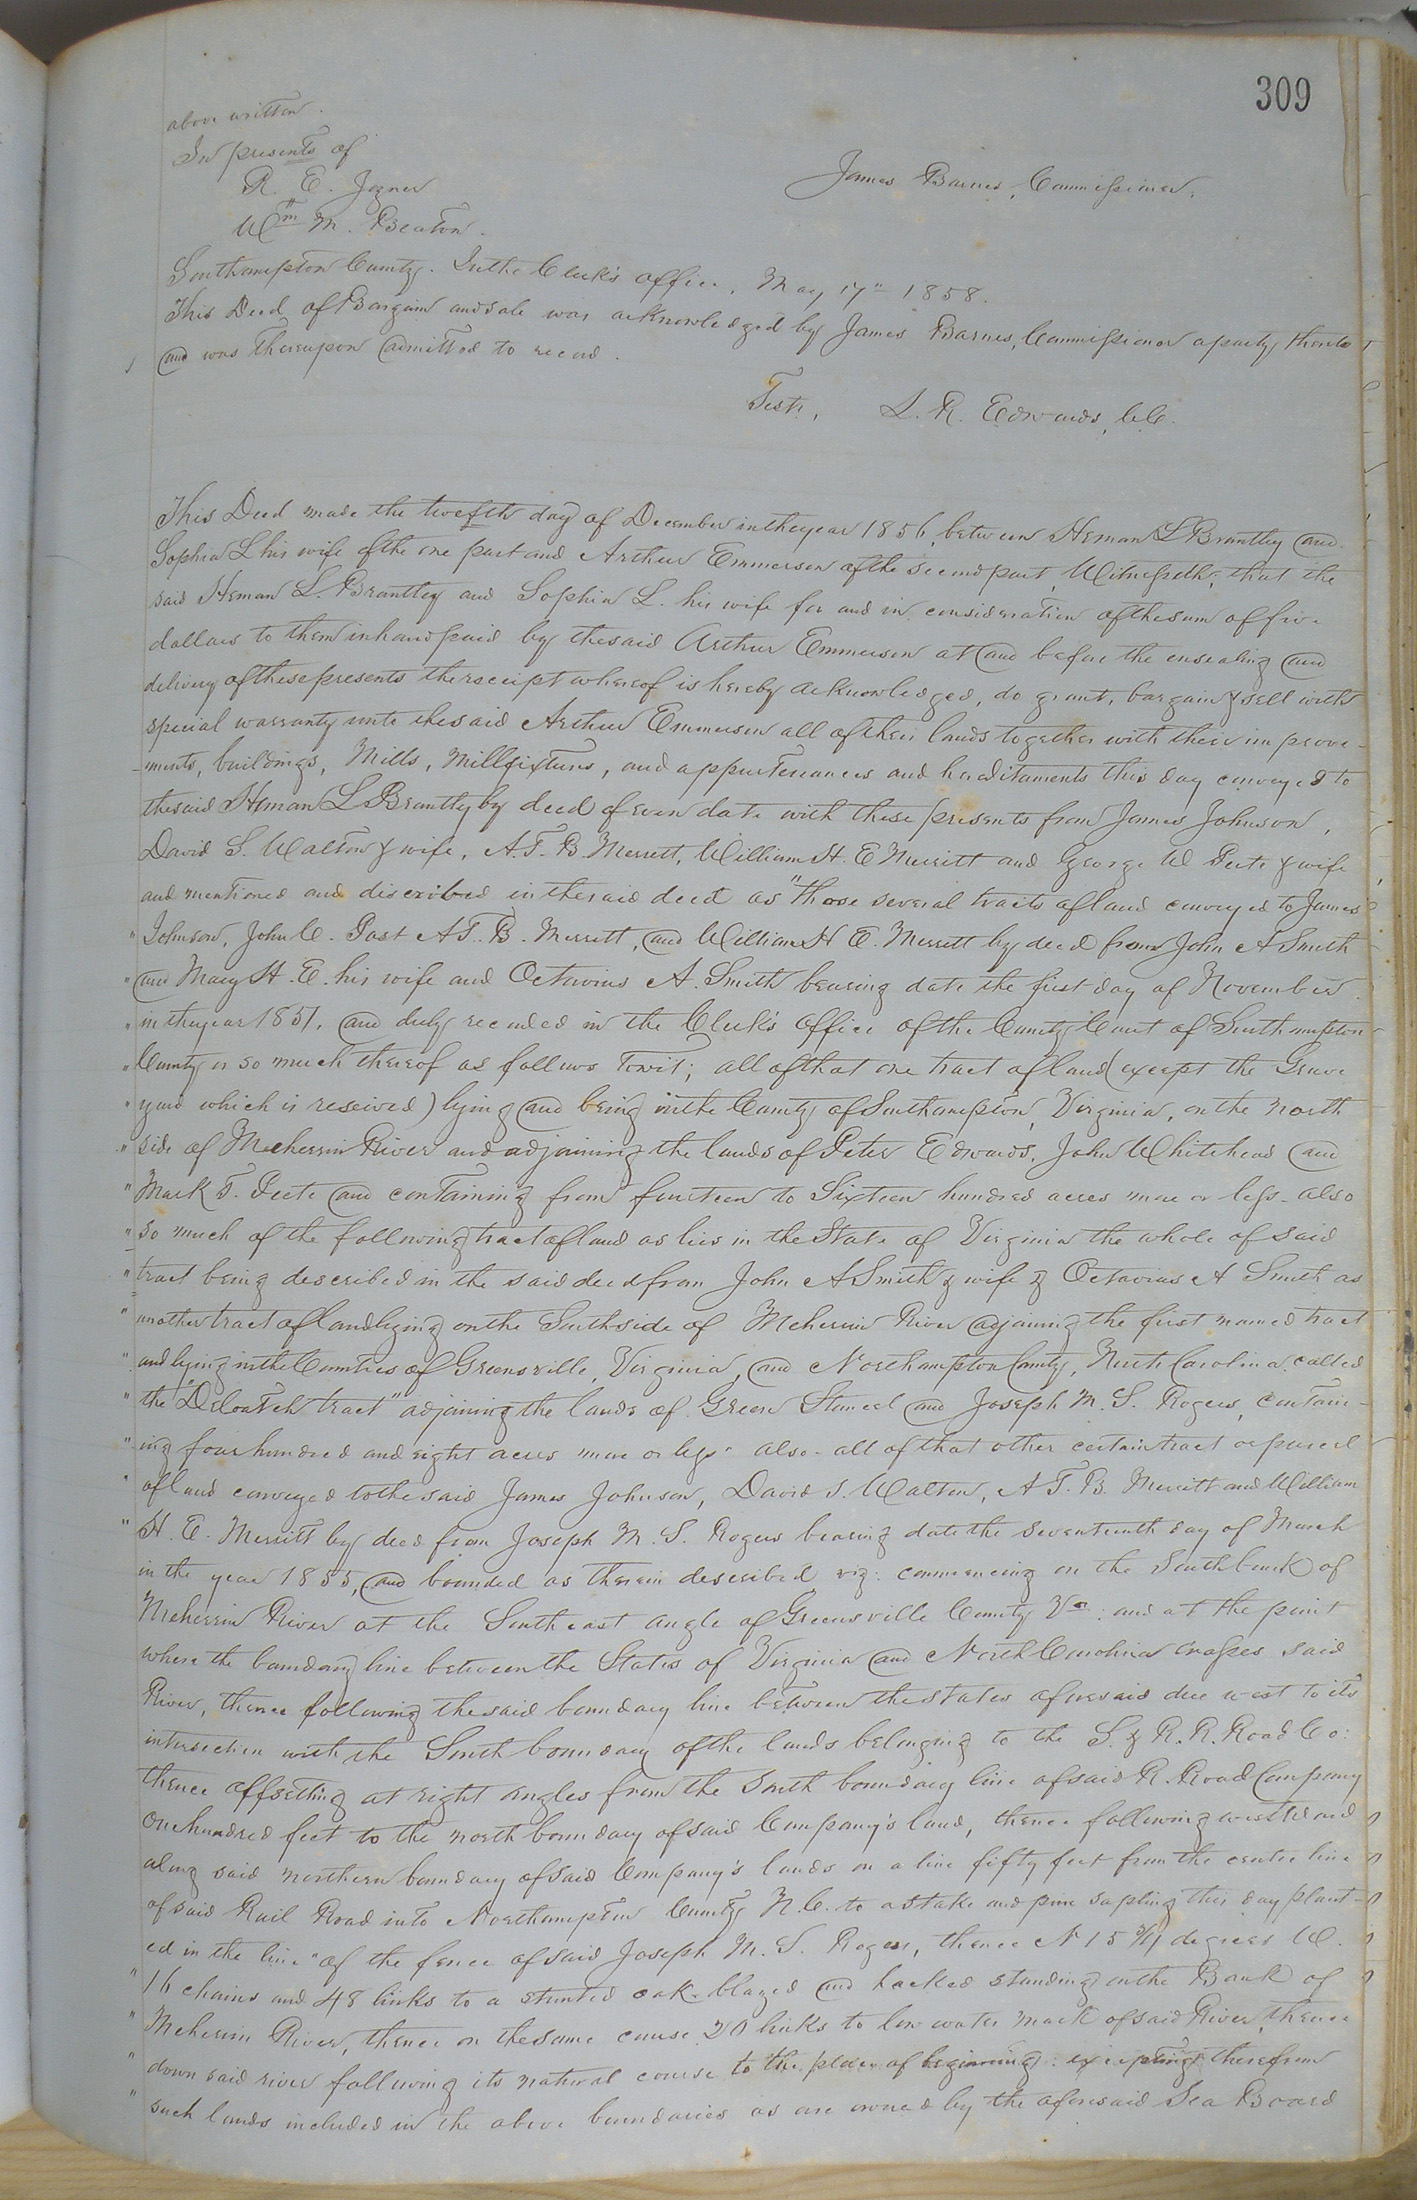 309
above written.
In presents of
R. E. Joyner
Wm M. Beaton.
James Barnes, Commissioner.
Southampton County. In the Clerk's office, May 17" 1858.
This Deed of Bargain and sale was acknowledged by James Barnes, Commissioner a party thereto
and was thereupon admitted to record.
Teste, L. R. Edwards, C.C.
This Deed made the twelfth day of December in the year 1856, between Heman L Brantley and
Sophia L his wife of the one part and Arthur Emmerson of the second part, Witnesseth; that the
said Heman L. Brantley and Sophia L. his wife for and in consideration of the sum of five
dollars to them in hand paid by the said Arthur Emmerson at and before the ensealing and
delivery of these presents the receipt whereof is hereby acknowledged, do grant, bargain & sell with
special warranty unto the said Arthur Emmerson all of their lands together with their improve-
-ments, buildings, Mills, Millfixtures, and appurtenances and hereditaments this day conveyed to
the said Heman L Brantley by deed of even date with these presents from James Johnson,
David S. Walton & wife, A. T. B. Merrett, William H. E Merritt and George W Peete & wife
and mentioned and discribed in the said deed as "those several tracts of land conveyed to James
" Johnson, John C. Post A T. B. Merrett, and William H E. Merritt by deed from John A Smith
" and Mary H. E. his wife and Octavius A. Smith bearing date the first day of November
" in the year 1851, and duly recorded in the Clerk's office of the County Court of Southampton
" County or so much thereof as follows towit; all of that one tract of land (except the Grave
" yard which is reserved) lying and being in the County of Southampton, Virginia, on the north
" side of Meherrin River and adjoining the lands of Peter Edwards, John Whitehead and
" Mark T. Peete and containing from fourteen to Sixteen hundred acres more or less - also
" so much of the following tract of land as lies in the State of Virginia the whole of said
" tract being described in the said deed from John A Smith & wife & Octavius A Smith as
" another tract of land lying on the South side of Meherrin River adjoining the first named tract
" and lying in the Counties of Greensville, Virginia, and Northampton County, North Carolina, called
" the "Deloatch tract" adjoining the lands of Green Stancel and Joseph M. S. Rogers, contain-
" ing four hundred and eight acres more or less - also - all of that other certain tract or parcel
" of land conveyed to the said James Johnson, David S. Walton, A T. B. Merritt and William
" H. E. Merritt by deed from Joseph M. S. Rogers bearing date the seventeenth day of March
in the year 1855, and bounded as therein described, viz: commencing on the South bank of
Meherrin River at the South east angle of Greensville County Va; and at the point
where the boundary line between the States of Virginia and North Carolina crosses said
River, thence following the said boundary line between the states aforesaid due west to its
intersection with the South boundary of the lands belonging to the S. & R. R. Road Co:
thence offsetting at right angles from the South boundary line of said R. Road Company
One hundred feet to the north boundary of said Company's land, thence following westward
along said northern boundary of said Company's lands on a line fifty feet from the centre line
of said Rail Road into Northampton County N. C. to a stake and pine sapling this day plant-
ed in the line " of the fence of said Joseph M. S. Rogers, thence N 15 3/4 degrees W.
" 16 chains and 48 links to a stunted oak blazed and hacked standing on the Bank of
" Meherrin River, thence on the same course 20 links to low water mark of said River, thence
" down said river following its natural course to the place of beginning: excepting therefrom
" such lands included in the above boundaries as are owned by the aforesaid Sea Board